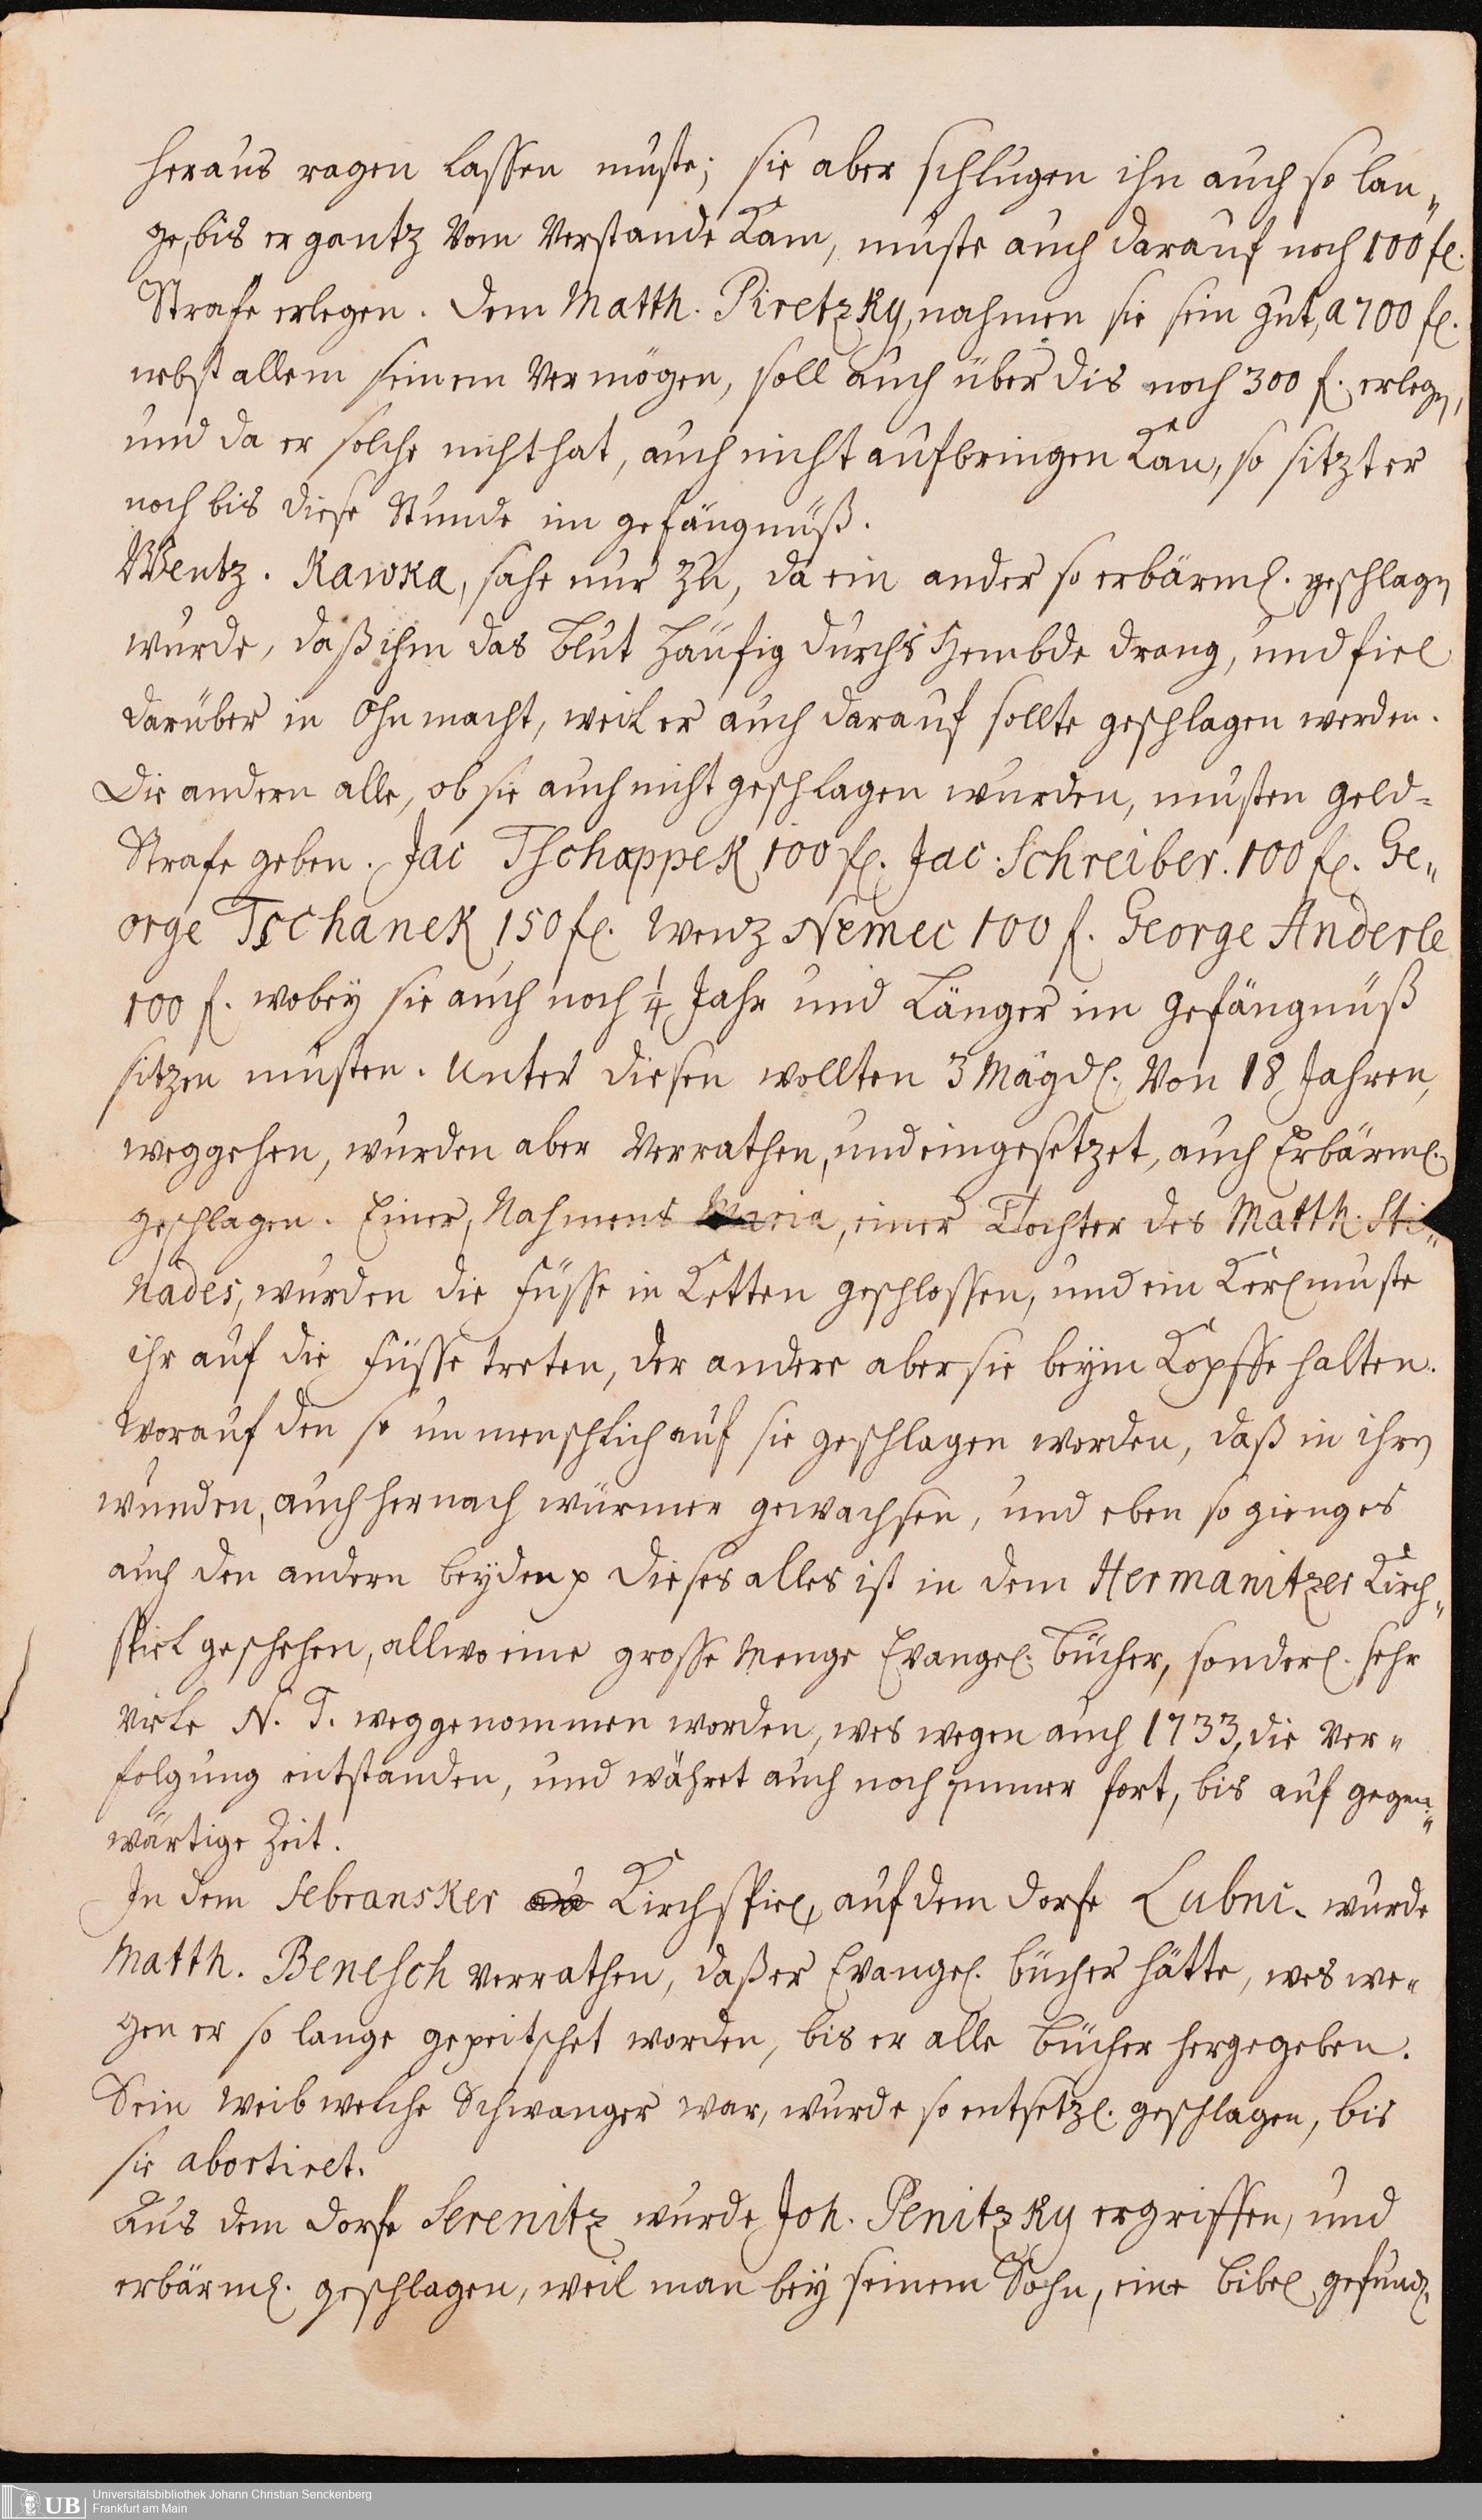 heraus ragen lassen muste; sie aber schlugen ihn auch so lan„
ge, bis er gantz vom Verstande kam, muste auch darauf noch 100 fl.
Strafe erlegen. Dem Matth. Piretzky, nahmen sie sein gut, a 700 fl.
nebst allem seinem Vermögen, soll auch über dis noch 300 f. erlegen,
und da er solche nicht hat, auch nicht aufbringen kan, so sitzt er
noch bis diese Stunde im gefängnüß.
Wentz. Kawka, sahe nur zu, da ein ander so erbärml. geschlagen
wurde, daß ihm das Blut häufig durchs Hembde drang, und fiel
darüber in Ohnmacht, weil er auch darauf sollte geschlagen werden.
Die andern alle, ob sie auch nicht geschlagen wurden, musten geld-
Strafe geben. Jac Tschappek 100 fl. Jac. Schreiber. 100 fl. Ge„
orge Tschanek 150 fl. Wenz Nemec 100 f. George Anderle
100 f. wobey sie auch noch 1/4 Jahr und länger im gefängnüß
sitzen musten. Unter diesen wollten 3 Mägdl. von 18 Jahren,
weggehen, wurden aber verrathen, und eingesetzet, auch Erbärml.
geschlagen. Einer, Nahmens Maria, einer Tochter des Matth. Sti„
nades, wurden die Füsse in Ketten geschlossen, und ein Kerl muste
ihr auf die Füsse treten, der andere aber sie beym Kopffe halten.
Worauf den so unmenschlich auf sie geschlagen worden, daß in ihren
wunden, auch hernach würmer gewachsen, und eben so gienges
auch den andern beyden p Dieses alles ist in dem Hermanitzer Kirch„
spiel geschehen, allwo eine grosse Menge Evangel. bücher, sonderl. sehr
viele N. T. weggenommen worden, wes wegen auch 1733, die Ver„
folgung entstanden, und währet auch noch immer fort, bis auf gegen„
wärtige Zeit.
In dem Sebransker Kirchspiel, auf dem Dorfe Lubni. wurde
Matth. Benesch verrathen, daß er Evangel. bücher hätte, wes we„
gen er so lange gepeitschet worden, bis er alle bücher hergegeben.
Sein Weib welche Schwanger war, wurde so entsetzl. geschlagen, bis
sie abortiret.
Aus dem Dorfe Serenitz wurde Joh. Penitzky ergriffen, und
erbärml. geschlagen, weil man bey seinem Sohn, eine bibel gefund.
UB Universitätsbibliothek Johann Christian Senckenberg
Frankfurt am Main